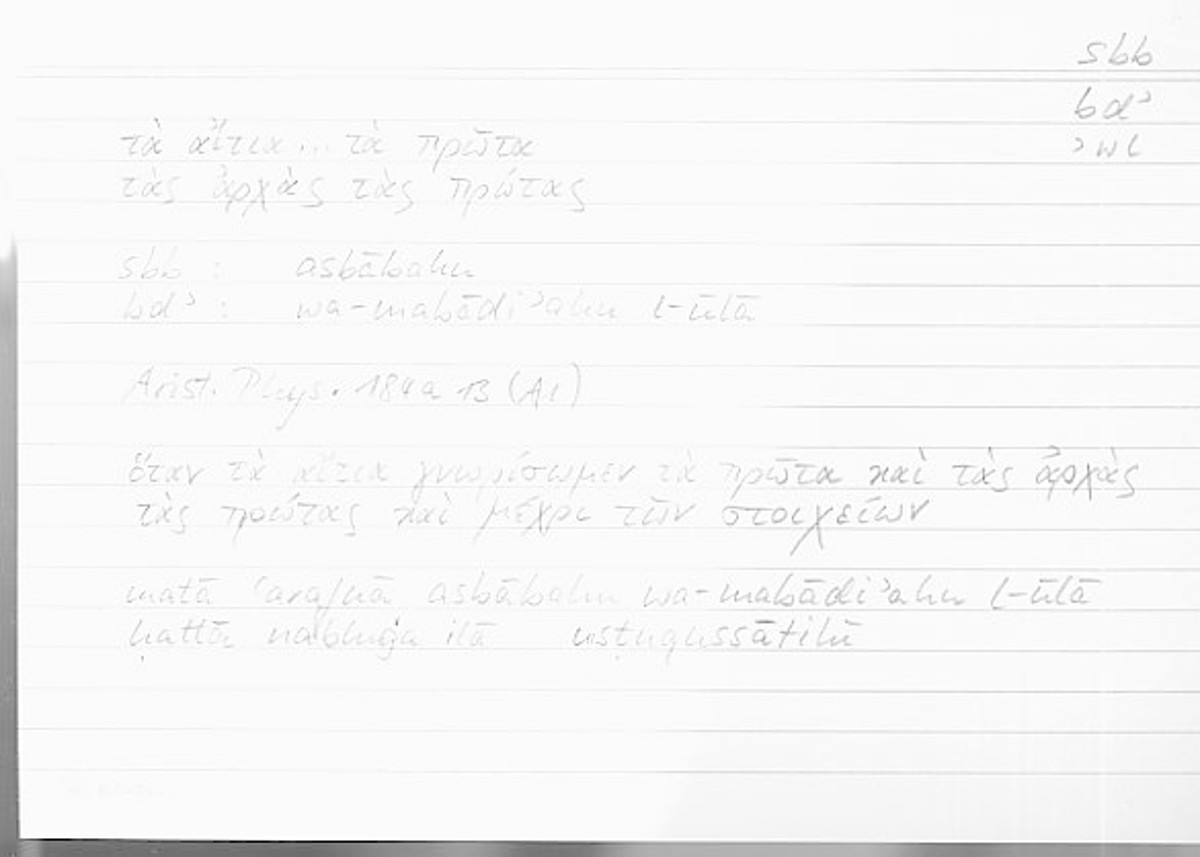 sbb
bdʾ
ʾwl
τὰ αἴτια ... τὰ πρῶτα
τὰς ἀρχὰς τὰς πρώτας
sbb : asbābahu
bdʾ : wa-mabādiʾahu l-ūlā
Arist. Phys. 184a 13 (A1)
ὅταν τὰ αἴτια γνωρίσωμεν τὰ πρῶτα καὶ τὰς ἀρχὰς
τὰς πρώτας καὶ μέχρι τῶν στοιχείων
matā ʿarafnā asbābahu wa-mabādiʾahu l-ūlā
ḥattā nabluġa ilā usṭuqussātihī